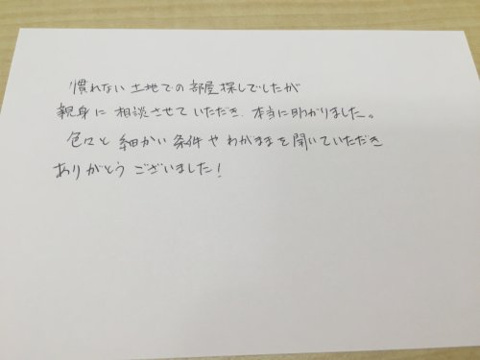 慣れない土地での部屋探しでしたが
親身に相談させていただき、本当に助かりました。
色々と細かい条件やわがままを聞いていただき
ありがとうございました!